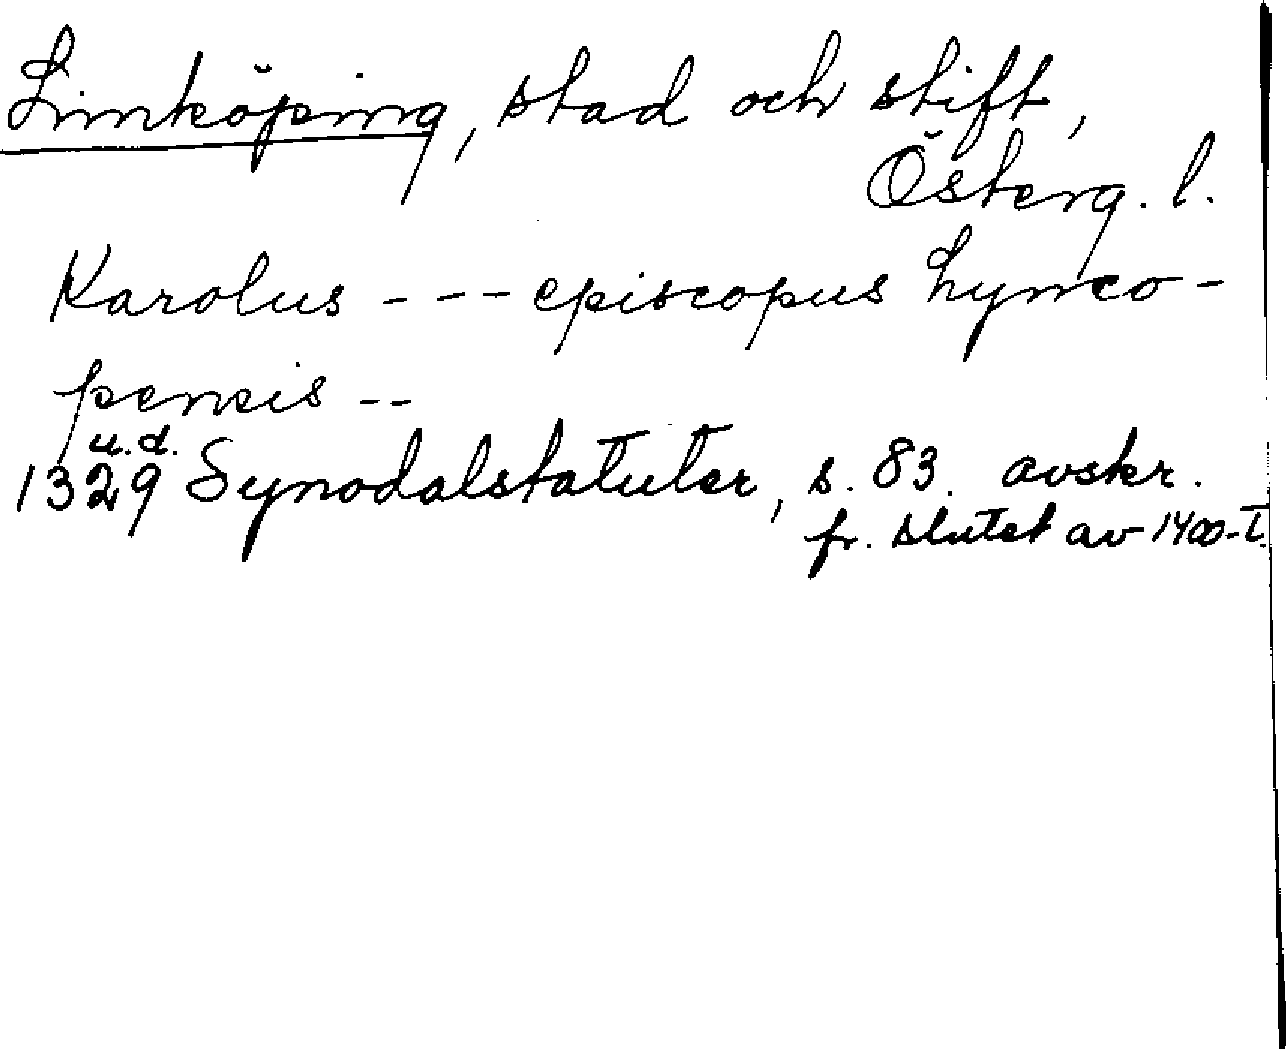 Linköping, stad och stift,
Österg. l.
Karolus - - - episcopus Lynco-
pensis --
u.d.
1329 Synodalstatuter, s. 83. avskr.
fr. slutet av 1400-t.